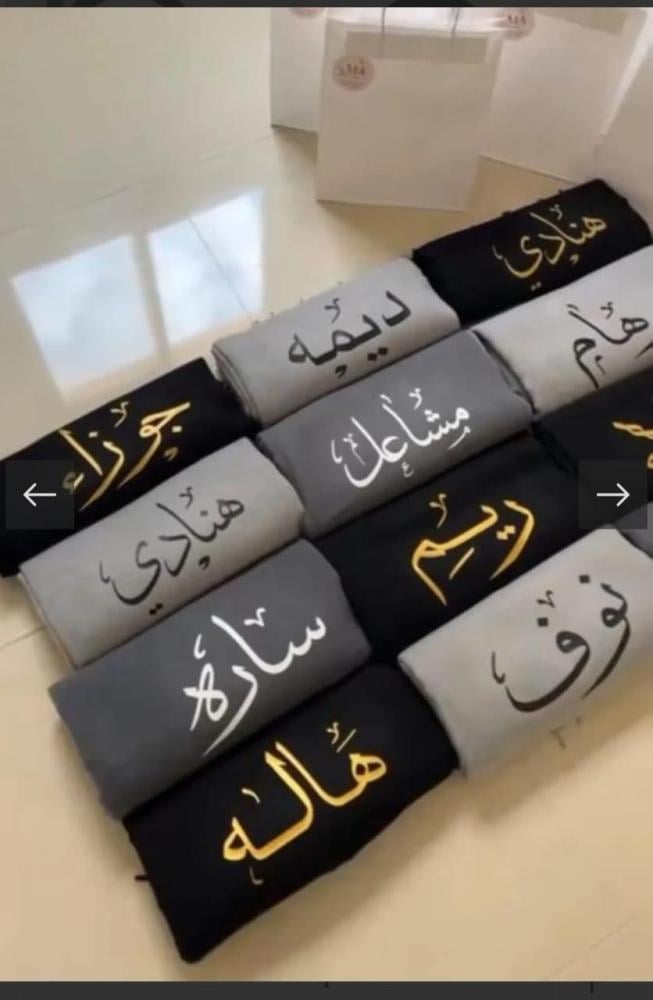 هنادي
ديمه
جوزاء
مشاعل
هنادي
ريم
ساره
نوف
هاله